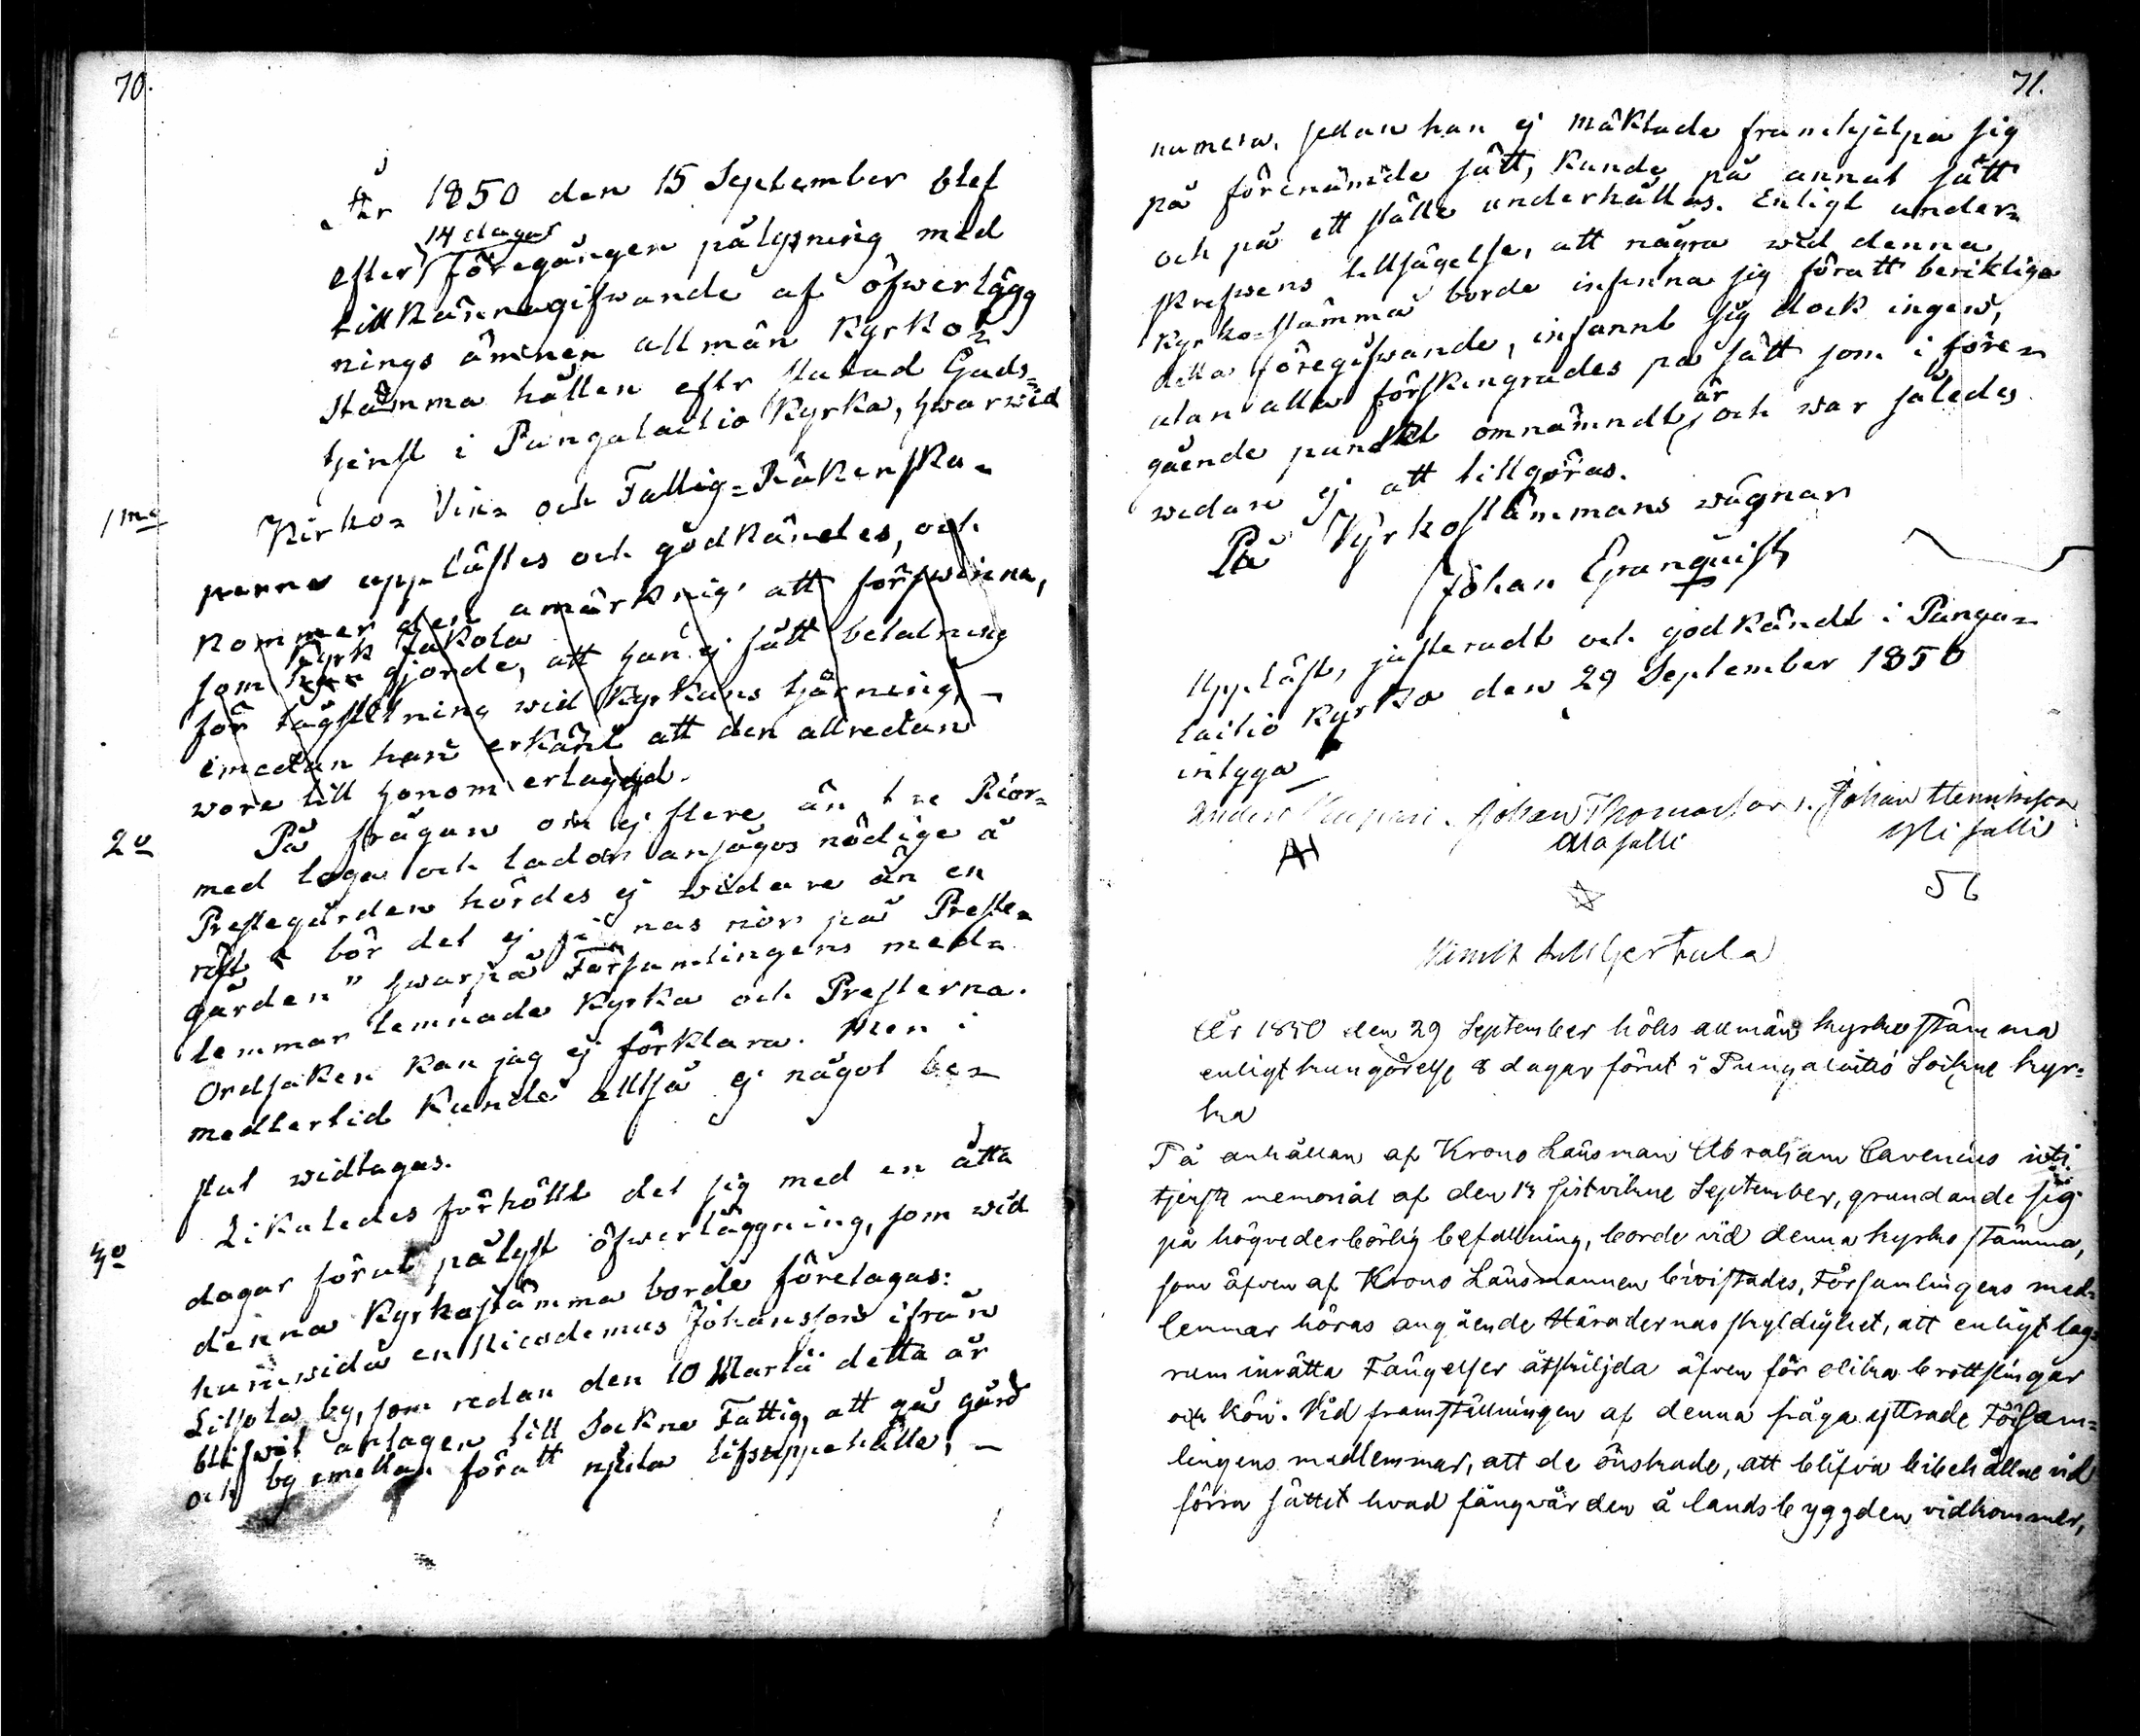 70.
År 1850 den 15 September blef
14 dagar
efter föregången pålysning med
tillkännagifwande af öfwerlägg
nings ämnen allmän Kyrko=
stämma hållen eftr slutad Guds=
tjenst i Pungalaitio Kyrka, hwarwid
1mo Kirko= Vin= och Fattig=Räkenska=
perne upplästes och godkändes, och
kommer den anmärknig att förswinna,
Kyrk Jakola
som gjorde, att han ej fått betalning
för tågslitning wid Kyrkans tjärning, –
emedan han erkänt att den allredan
wore till honom erlaggd.
2o På frågan om ej flere än tre Rior=
med loga och lador ansågos nödige å
Prestegården hördes ej widare än en
röst bör det ej finnas rior på Preste=
gården" hwarpå Församlingens med=
lemmar lemnade Kyrka och Presterna.
Ordsaken kan jag ej förklara. Men i
medlertid kunde alltså ej något be=
slut widtagas.
3o Likaledes förhöllt det sig med en åtta
dagar förut pålyst öfwerläggning, som wid
denna Kyrkostämma borde företagas:
huruwida en Nicodemus Johansson ifrån
Liisola by, som redan den 10 Martii detta år
blifwit antagen till Sockne Fattig, att gå gård
och by emellan föratt njuta lifsuppehälle, –
71.
numera, sedan han ej mäktade framhjelpa sig
på förenämde sätt, kunde på annat sätt
och på ett ställe underhållas. Enligt under=
skrefwens tillsägelse, att några wid denna
Kyrko=stämma borde infinna sig föratt beriktiga
detta föregifwande, infannt sig dock ingen,
utan alla förskingrades på sätt som i före=
är
gående punkt omnämndt, och war således
widare ej att tillgöras.
På Kyrkostämmans wägnar
Johan Granquist
Uppläst, justeradt och godkändt i Punga=
laitio Kyrka den 29 September 1850
intyga
Anders Johan Thomasson. Johan Henriksson
Alasalli Ylisalli
56
År 1850 den 29 September hölls allmän kyrkostämma
enligt kungörelse 8 dagar förut i Pungalaitio Sockne kyr=
ka
På anhållan af Krono Länsman Abraham Cavenius uti
tjenste memorial af den 13 sistvikne September, grundande sig
på högvederbörlig befallning, borde vid denna kyrko stämma,
som äfven af Krono Länsmannen bivistades, Församlingens med=
lemmar höras angående Häradernas skyldighet, att enligt lag=
rum inrätta Fängelser åtskiljda äfven för olika brottslingar
och kön. Vid framställningen af denna fråga yttrade Försam=
lingens medlemmar, att de önskade, att blifva bibehållne vid
förra sättet hvad fångvården å landsbyggden vidkommer,